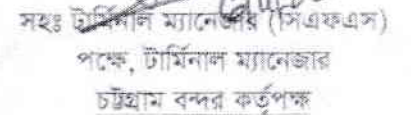 সহঃ টার্মিনাল ম্যানেজার (সিএফএস)
পক্ষে, টার্মিনাল ম্যানেজার
চট্টগ্রাম বন্দর কর্তৃপক্ষ